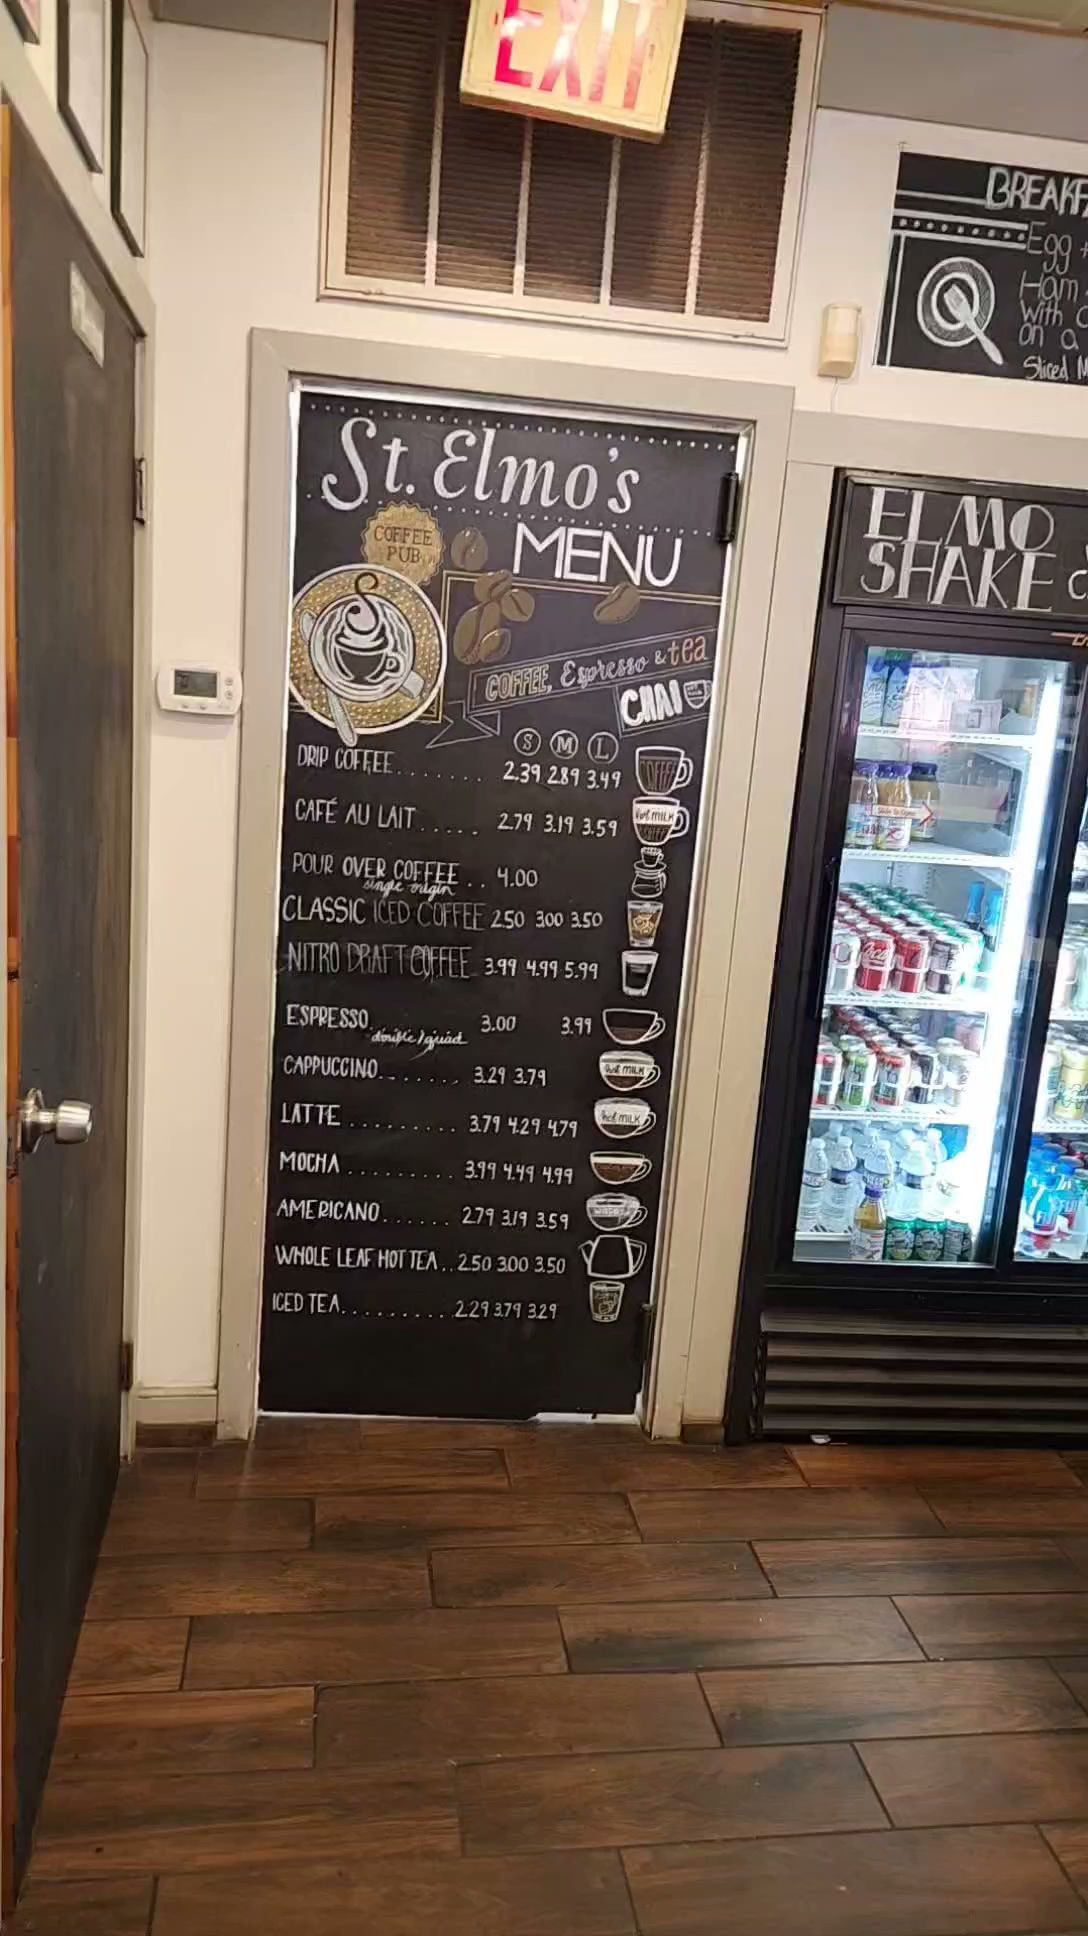 EXIT
BREAKF
Egg +
Ham
with C
on a
Sliced M
St. Elmo's
MENU
COFFEE
PUB
COFFEE, Espresso & tea
CHAI
S M L
DRIP COFFEE........ 2.39 2.89 3.49
COFFEE
CAFÉ AU LAIT..... 2.79 3.19 3.59
Hot MILK
POUR OVER COFFEE.. 4.00
single origin
CLASSIC ICED COFFEE 2.50 3.00 3.50
NITRO DRAFT COFFEE 3.99 4.99 5.99
ESPRESSO 3.00 3.99
double/quad
CAPPUCCINO........ 3.29 3.79
Hot MILK
LATTE.......... 3.79 4.29 4.79
Hot MILK
MOCHA.......... 3.99 4.49 4.99
AMERICANO....... 2.79 3.19 3.59
WHOLE LEAF HOT TEA.. 2.50 3.00 3.50
ICED TEA.......... 2.29 3.79 3.29
ELMO
SHAKE